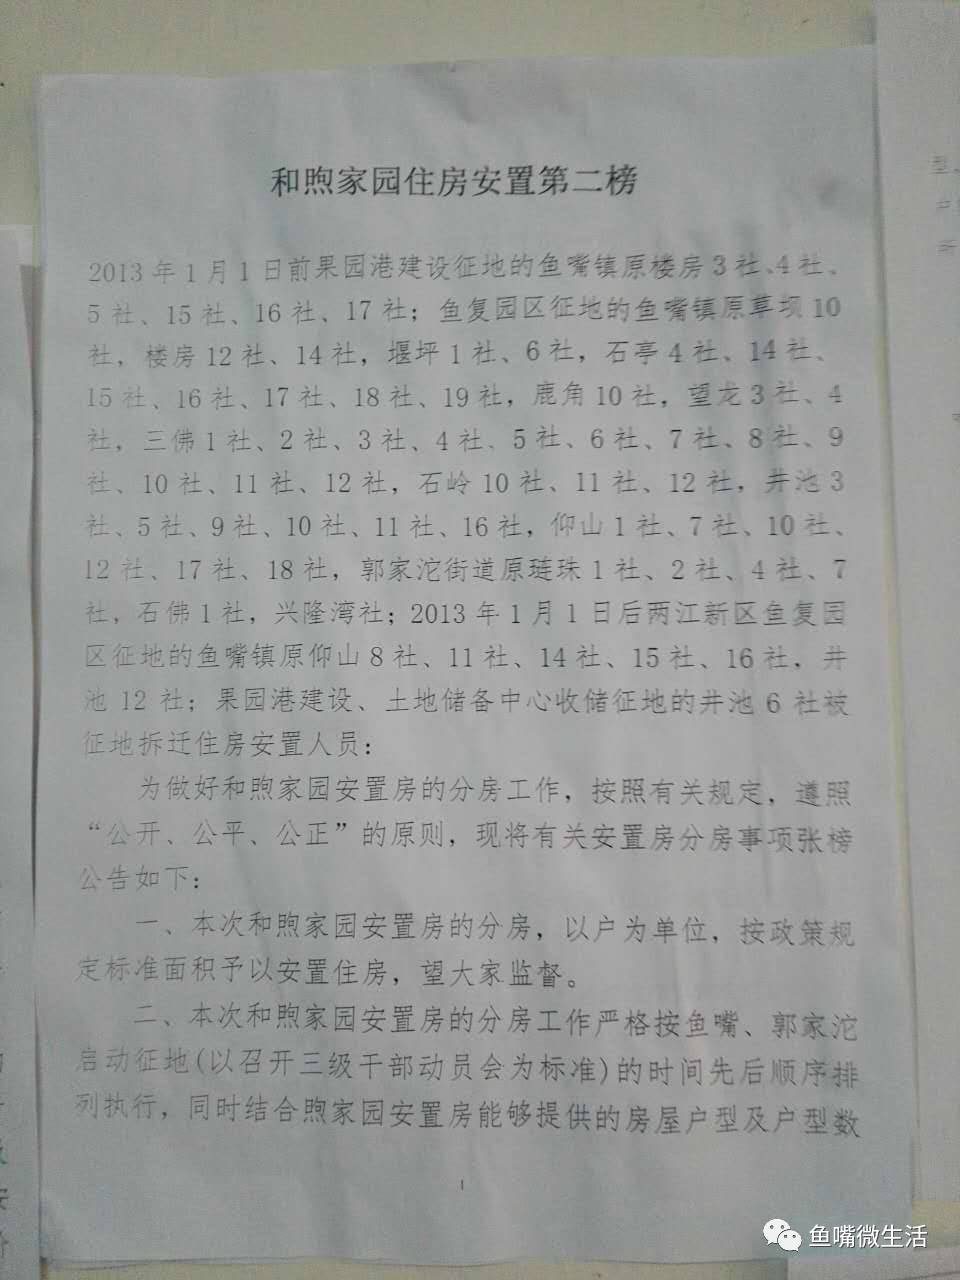 和煦家园住房安置第二榜
2013年1月1日前果园港建设征地的鱼嘴镇原楼房3社、4社、
5社、15社、16社、17社；鱼复园区征地的鱼嘴镇原草坝10
社，楼房12社、14社，堰坪1社、6社，石亭4社、14社、
15社、16社、17社、18社、19社，鹿角10社，望龙3社、4
社，三佛1社、2社、3社、4社、5社、6社、7社、8社、9
社、10社、11社、12社，石岭10社、11社、12社，井池3
社、5社、9社、10社、11社、16社，仰山1社、7社、10社、
12社、17社、18社，郭家沱街道原琏珠1社、2社、4社、7
社，石佛1社，兴隆湾社；2013年1月1日后两江新区鱼复园
区征地的鱼嘴镇原仰山8社、11社、14社、15社、16社，井
池12社；果园港建设、土地储备中心收储征地的井池6社被
征地拆迁住房安置人员：
为做好和煦家园安置房的分房工作，按照有关规定，遵照
“公开、公平、公正”的原则，现将有关安置房分房事项张榜
公告如下：
一、本次和煦家园安置房的分房，以户为单位，按政策规
定标准面积予以安置住房，望大家监督。
二、本次和煦家园安置房的分房工作严格按鱼嘴、郭家沱
启动征地(以召开三级干部动员会为标准)的时间先后顺序排
列执行，同时结合煦家园安置房能够提供的房屋户型及户型数
1
型
安
鱼嘴微生活